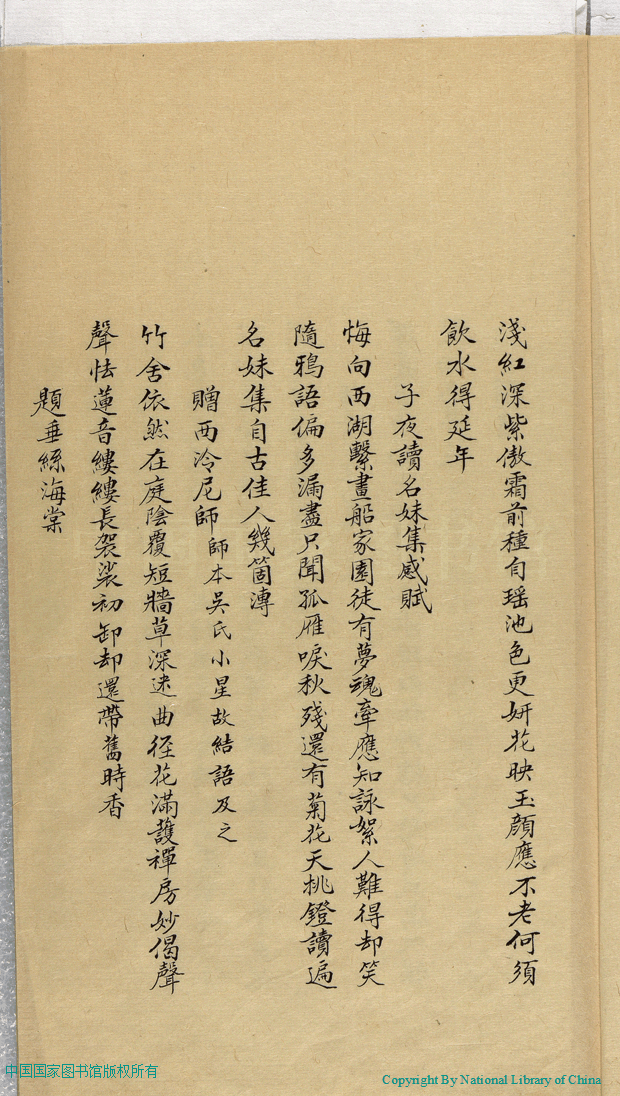 淺紅深紫傲霜前種自瑶池色更妍花映玉顔應不老何須
飲水得延年
子夜讀名妹集感賦
悔向西湖繫畫船家園徒有夢魂牽應知詠絮人難得却笑
隨鴉語偏多漏盡只聞孤雁唳秋殘還有菊花天挑鐙讀遍
名妹集自古佳人幾箇漙
贈西泠尼師師本吳氏小星故結語及之
竹舍依然在庭陰覆短牆草深迷曲徑花滿護禪房妙偈聲
聲怯蓮音縷縷長袈裟初卸却還帶舊時香
題垂絲海棠
中国国家图书馆版权所有
Copyright By National Library of China